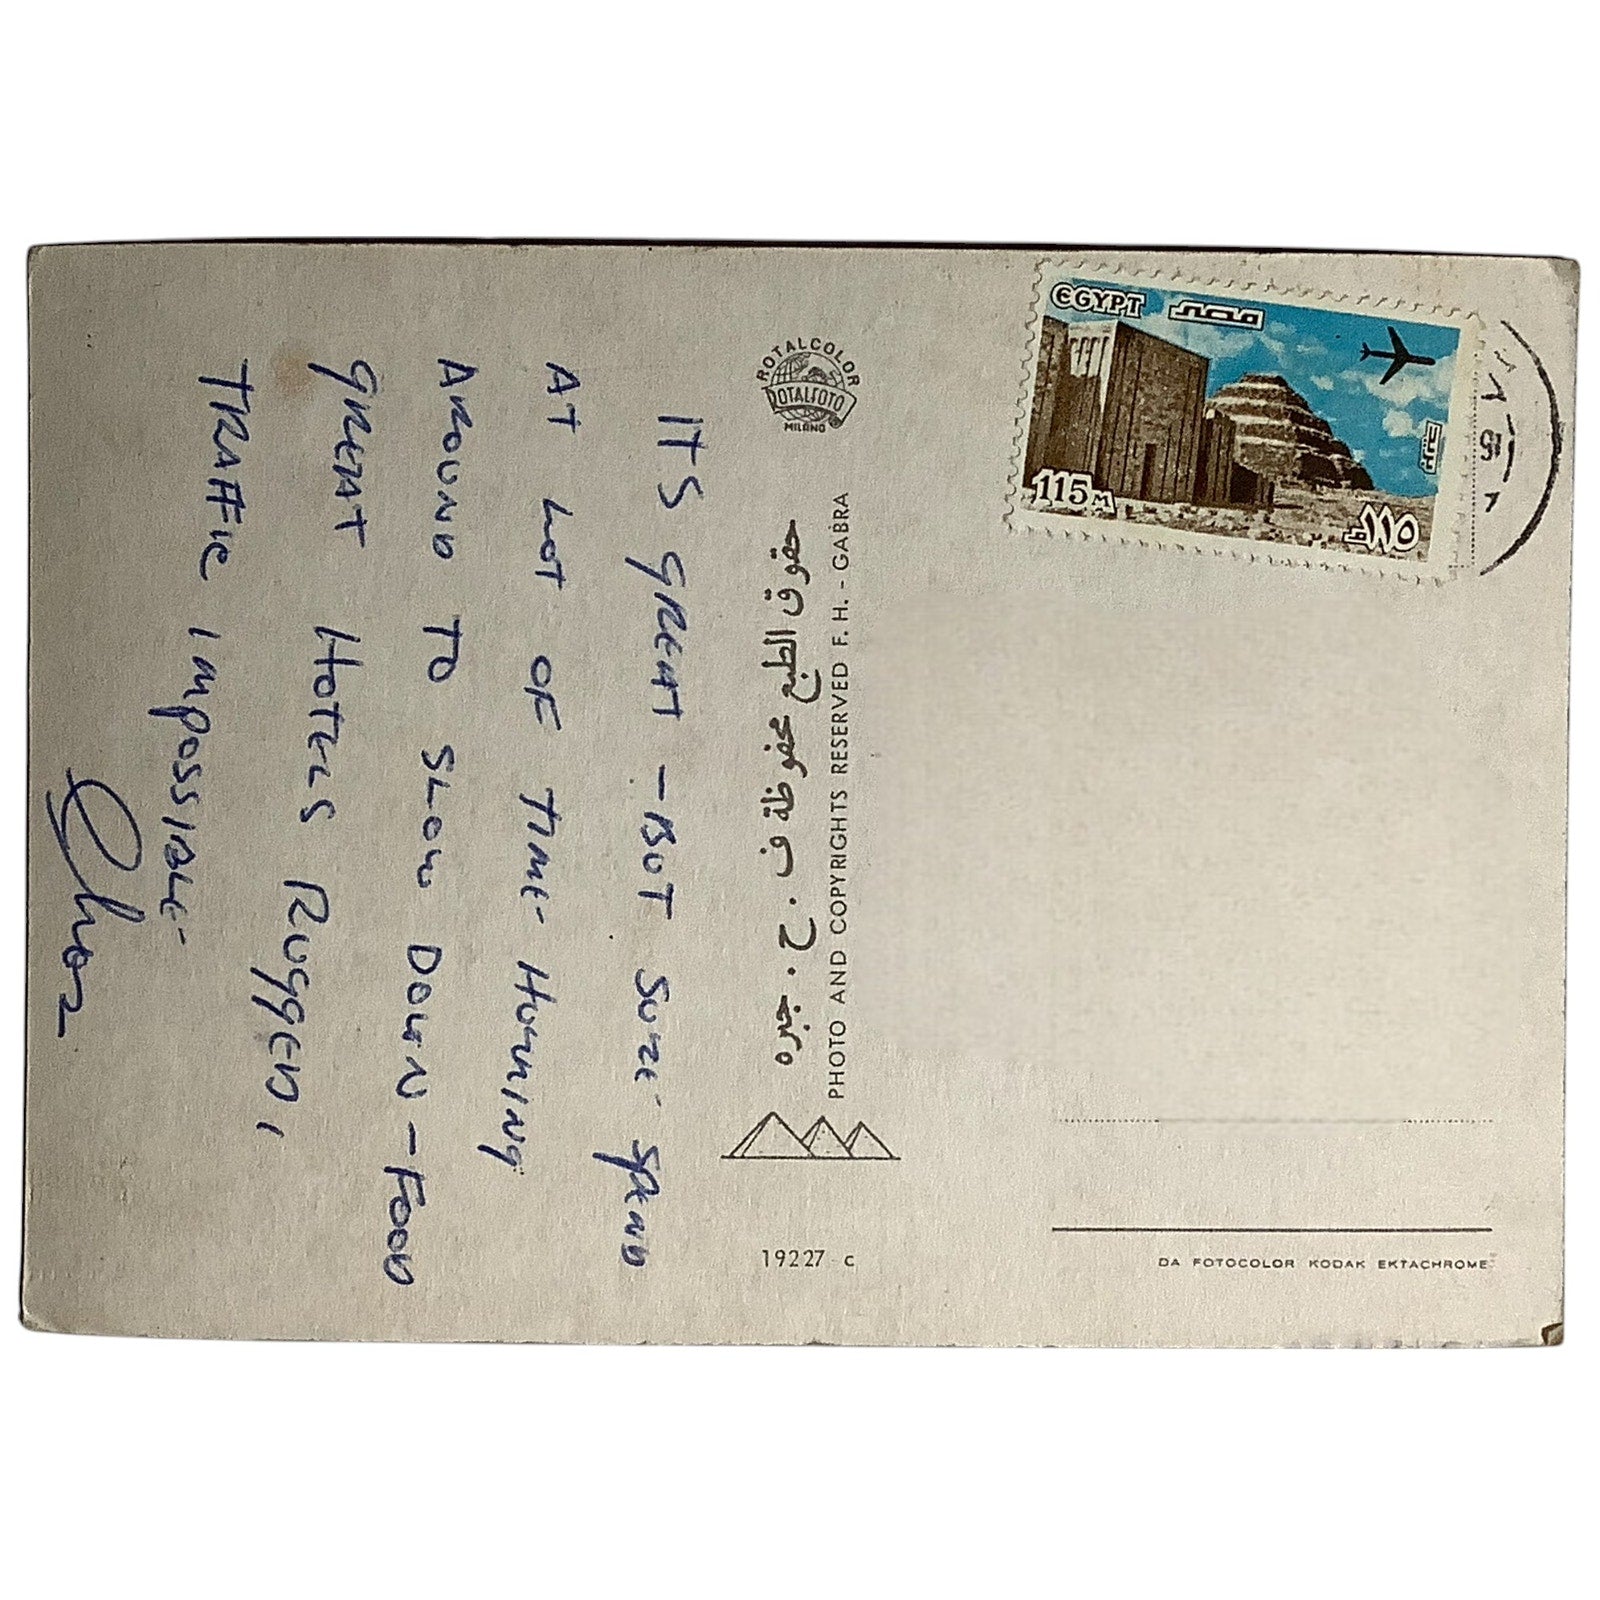 ITS GREAT - BUT SURE SPEND
AT LOT OF TIME HURRING
AROUND TO SLOW DOWN - FOOD
GREAT HOTELS RUGGED,
TRAFFIC IMPOSSIBLE -
ROTALCOLOR
ROTALFOTO
MILANO
حقوق الطبع محفوظة ف . ح . جبره
PHOTO AND COPYRIGHTS RESERVED F. H. - GABRA
19227 c
EGYPT مصر
115 M
١١٥ م
بريد
DA FOTOCOLOR KODAK EKTACHROME